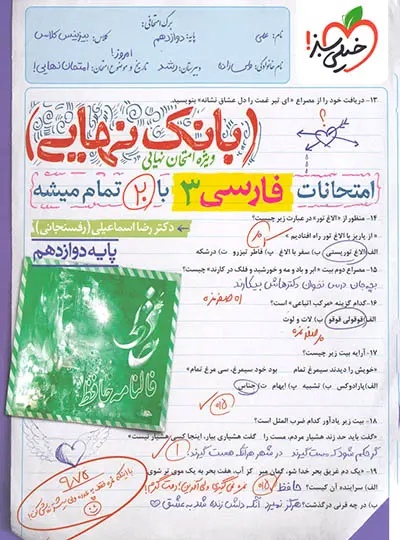 خیلی سبز!
برگ امتحانی:
نام: علی
پایه: دوازدهم
کلاس: بیزینس کلاس
امروز!
دبیرستان: رشد
تاریخ و موضوع امتحان: امتحان نهایی!
۱۳- دریافت خود را از مصراع «ای تیر غمت را دل عشاق نشانه» بنویسید.
(بانک نهایی)
ویژه امتحان نهایی
امتحانات فارسی ۳ با ۲۰ تمام میشه
۱۴- منظور از «الاغ تور» در عبارت زیر چیست؟
دکتر رضا اسماعیلی (رفسنجانی)
«از پاریز با الاغ تور راه افتادیم.»
پایه دوازدهم
الف) الاغ توریستی ب) سفر با الاغ پ) قاطر تیزرو ت) درشکه
۱۵- مصراع دوم بیت «ابر و باد و مه و خورشید و فلک در کارند» چیست؟
بچه‌مان درس نخوان دکترهاش بیکارند
۱۶- کدام گزینه «مرکب اتباعی» است؟
الف) قوقولی قوقو ب) لات و لوت
فالنامه حافظ
۱۷- آرایه بیت زیر چیست؟
«خویش را دیدند سیمرغ تمام بود خود سیمرغ، سی مرغ تمام»
الف) پارادوکس ب) تشبیه پ) ایهام ت) جناس
۱۸- بیت زیر یادآور کدام ضرب المثل است؟
«گفت باید حد زند هشیار مردم، مست را گفت هشیاری بیار، اینجا کسی هشیار نیست»
گر حکم شود که مست گیرند در شهر هر آنکه هست گیرند!
۱۹- «یک دم غریق بحر خدا شو، گمان مبر کز آب، هفت بحر به یک موی تر شوی
الف) سراینده آن کیست؟ حافظ
ب) در چه قرنی درگذشت؟ هرگز نمیرد آنکه دلش زنده شد به عشق